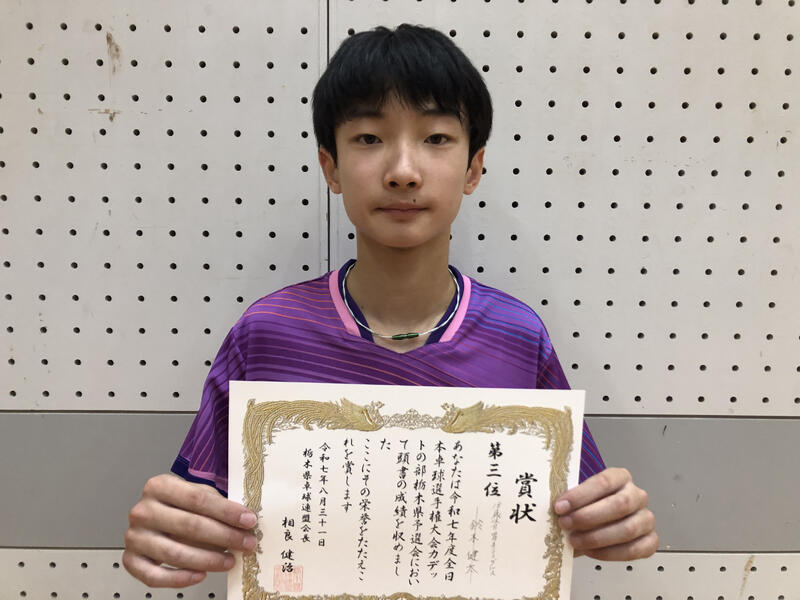 賞状
第三位
鈴木健太
あなたは令和七年度全日
本卓球選手権大会カデッ
トの部栃木県予選会におい
て頭書の成績を収めまし
た
ここにその栄誉をたたえこ
れを賞します
令和七年八月三十一日
栃木県卓球連盟会長
相良 健治